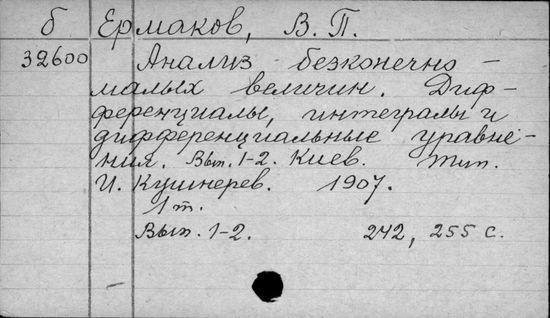 б Ермаков, В. П.
32600 Анализ безконечно -
малых величин. Диф-
ференциалы, интегралы и
дифференциальные уравне-
ния. Вып. 1-2. Киев. Тип.
И. Кушнерев. 1907.
1 т.
Вып. 1-2. 242, 255 с.